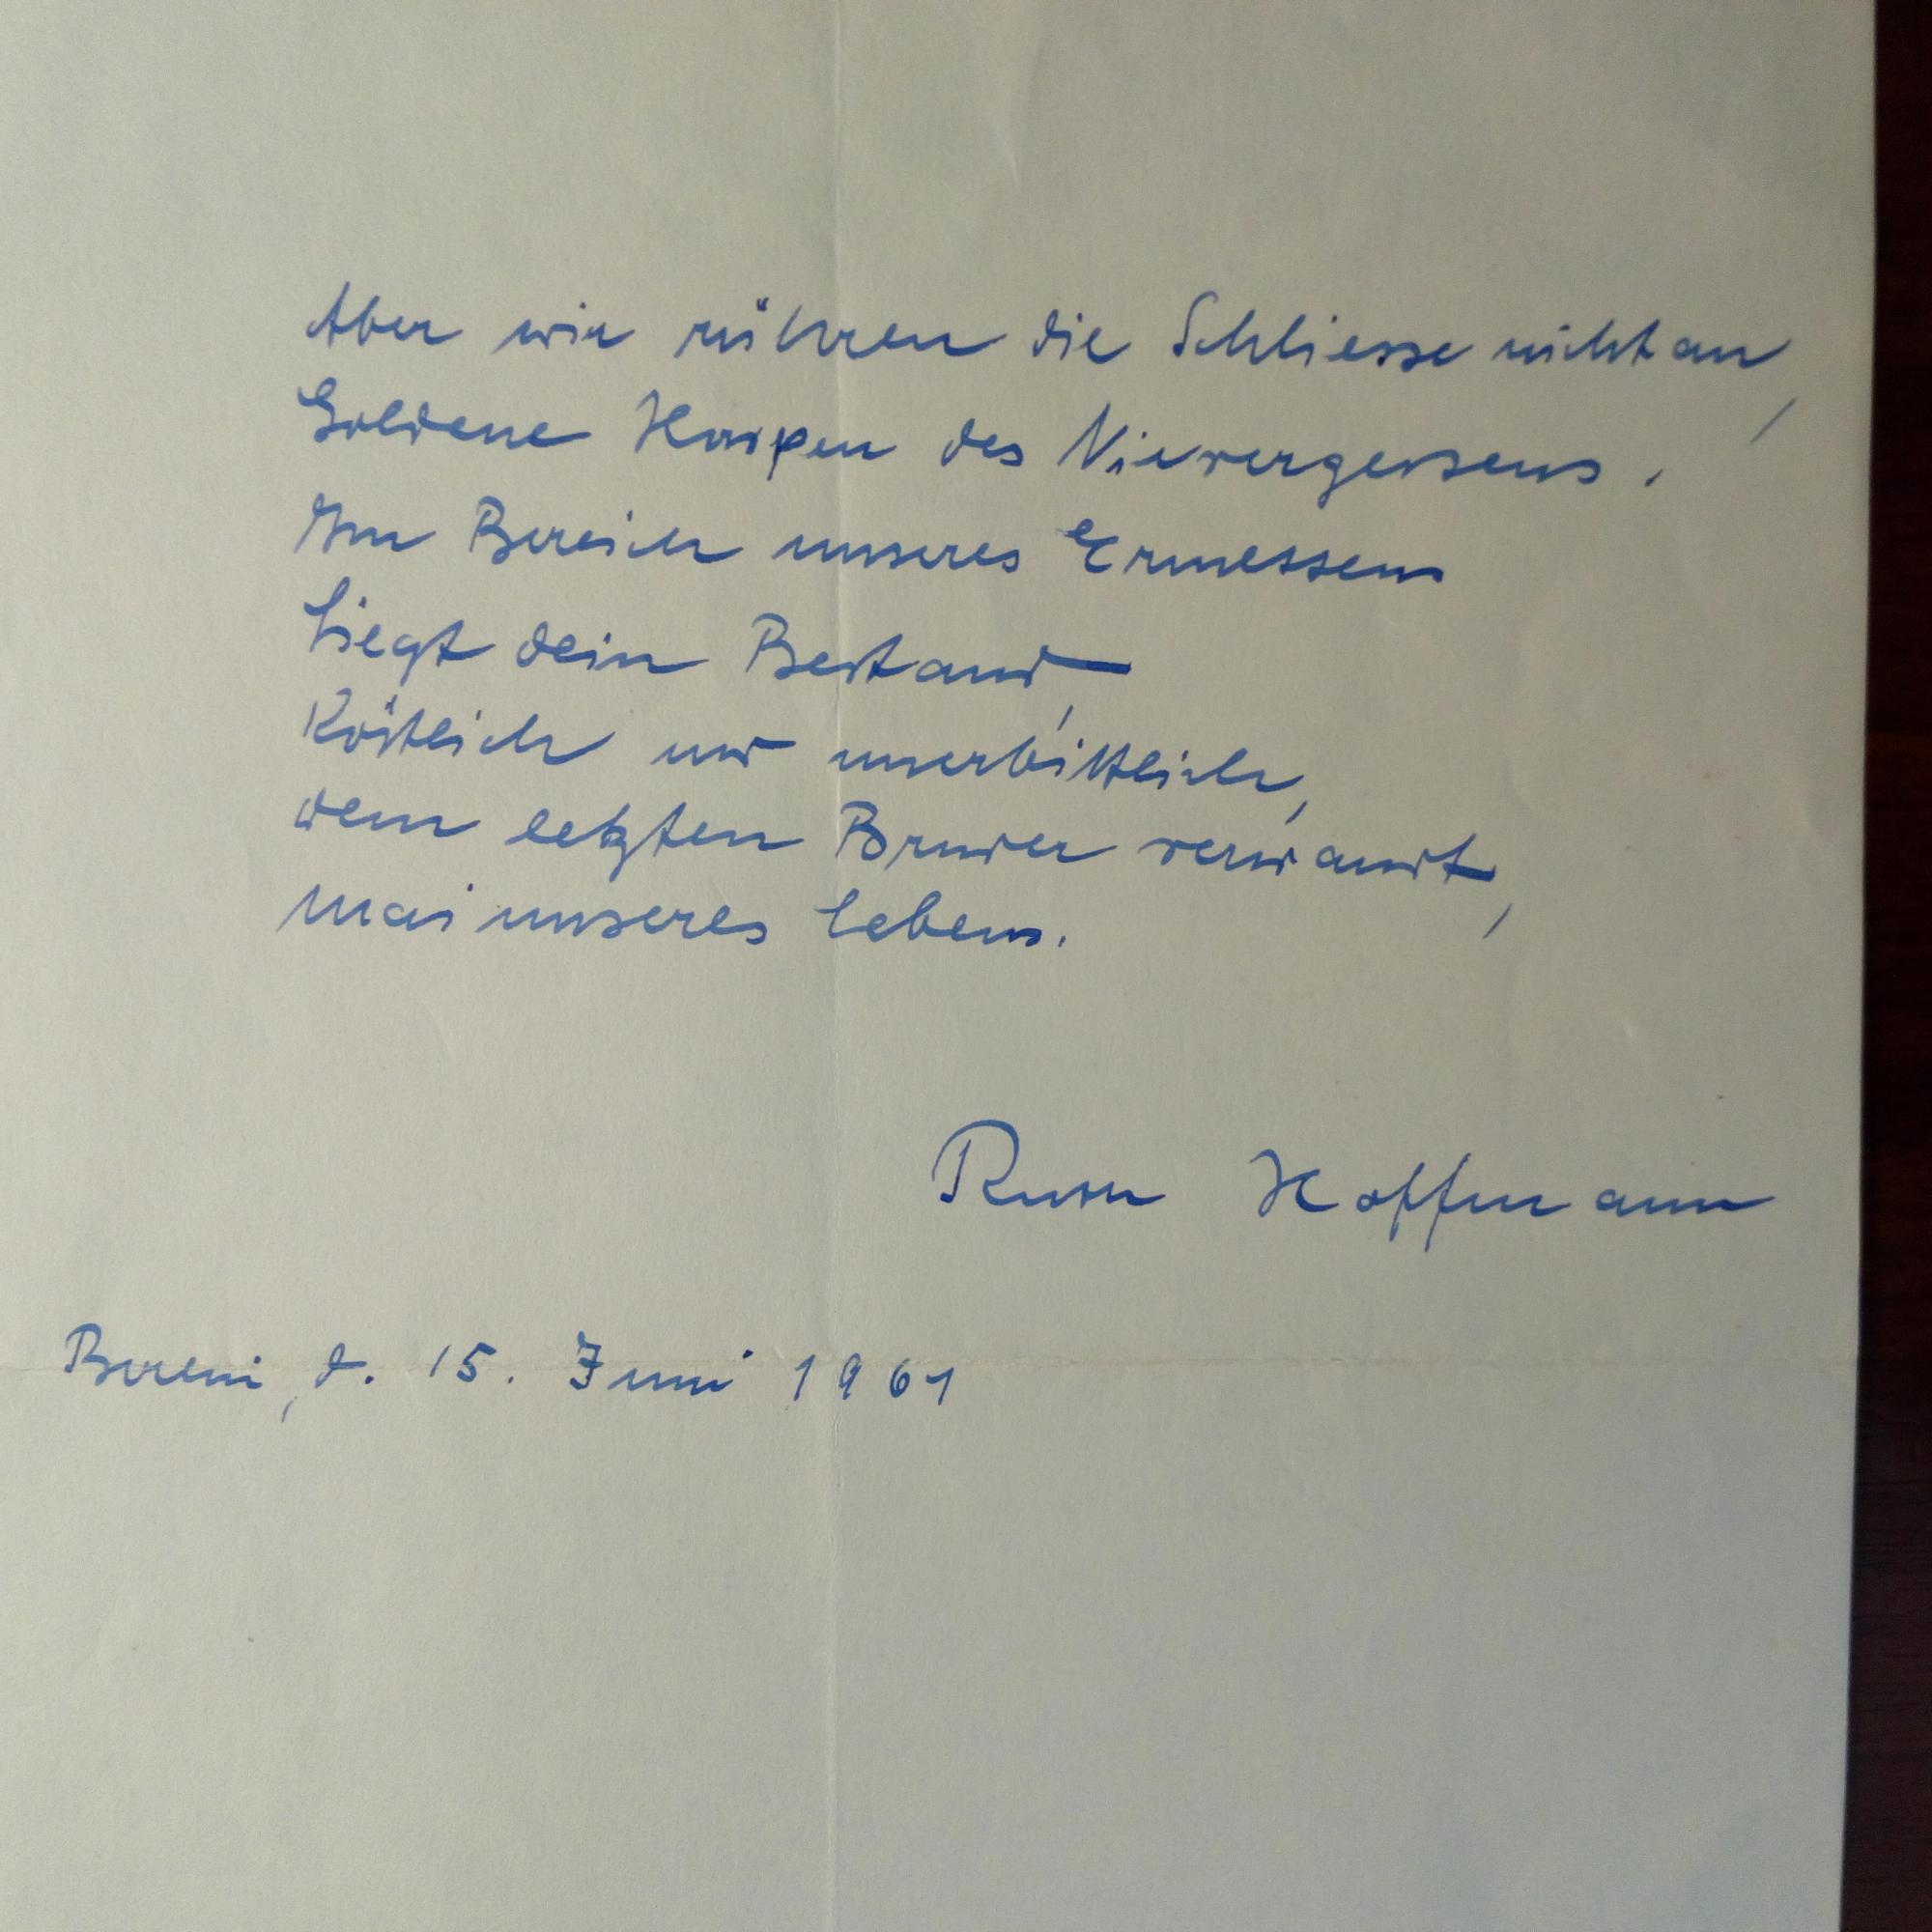 Aber wir rühren die Schliesse nicht an,
Goldene Harpen des Nievergessens.
Im Bereich unseres Ermessens
Liegt dein Bestand,
Köstlich und unerbittlich,
dem letzten Bruder verwandt,
Mai unseres Lebens.
Ruth Hoffmann
Berlin, d. 15. Juni 1961